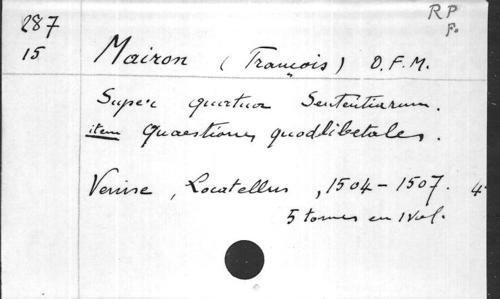 287
15
RP
F.
Mairon (François) O.F.M.
Super quatuor Sententiarum.
item Quaestiones quodlibetales.
Venise, Locatellus, 1504-1507. 4°
5 tomes en 1 vol.